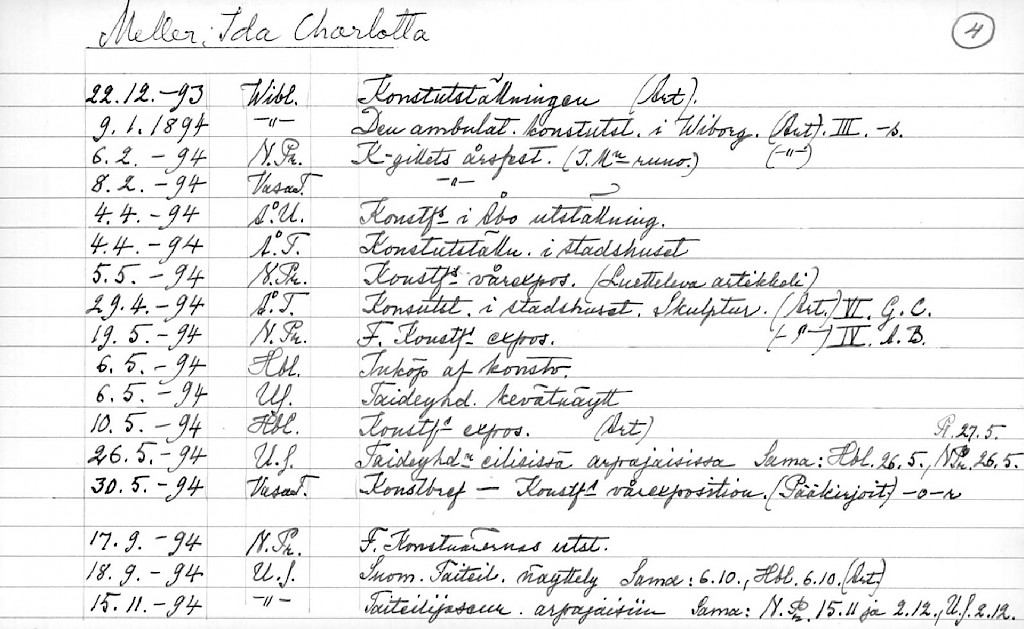 Meller, Ida Charlotta 4
22.12.-93 Wibl. Konstutställningen (Art).
9.1.1894 -"- Den ambulat. konstutst. i Wiborg. (Art). III. -s.
6.2.-94 N.Pr. K-gillets årsfest. (I. M:n runo.) (-"-)
8.2.-94 VasaT. -"-
4.4.-94 Å.U. Konstf:s i Åbo utställning.
4.4.-94 Å.T. Konstutställn. i stadshuset
5.5.-94 N.Pr. Konstf:s vårexpos. (Luetteleva artikkeli)
29.4.-94 Å.T. Konsutst. i stadshuset. Skulptur. (Art.) VI. G.C.
19.5.-94 N.Pr. F. Konstf:s expos. (-"-) IV. A.B.
6.5.-94 Hbl. Inköp af konstv.
6.5.-94 U.S. Taideyhd. kevätnäytt
10.5.-94 Hbl. Konstf:s expos. (Art)
27.5.
26.5.-94 U.S. Taideyhd:n eilisissä arpajaisissa Sama: Hbl. 26.5., N.Pr. 26.5.
30.5.-94 VasaT. Konstbref — Konstf:s vårexposition. (Pääkirjoit) -o-r
17.9.-94 N.Pr. F. Konstnärernas utst.
18.9.-94 U.S. Suom. Taiteil. näyttely Sama: 6.10., Hbl. 6.10. (Art)
15.11.-94 -"- Taiteilijaseur. arpajaisiin Sama: N.Pr. 15.11 ja 2.12., U.S. 2.12.